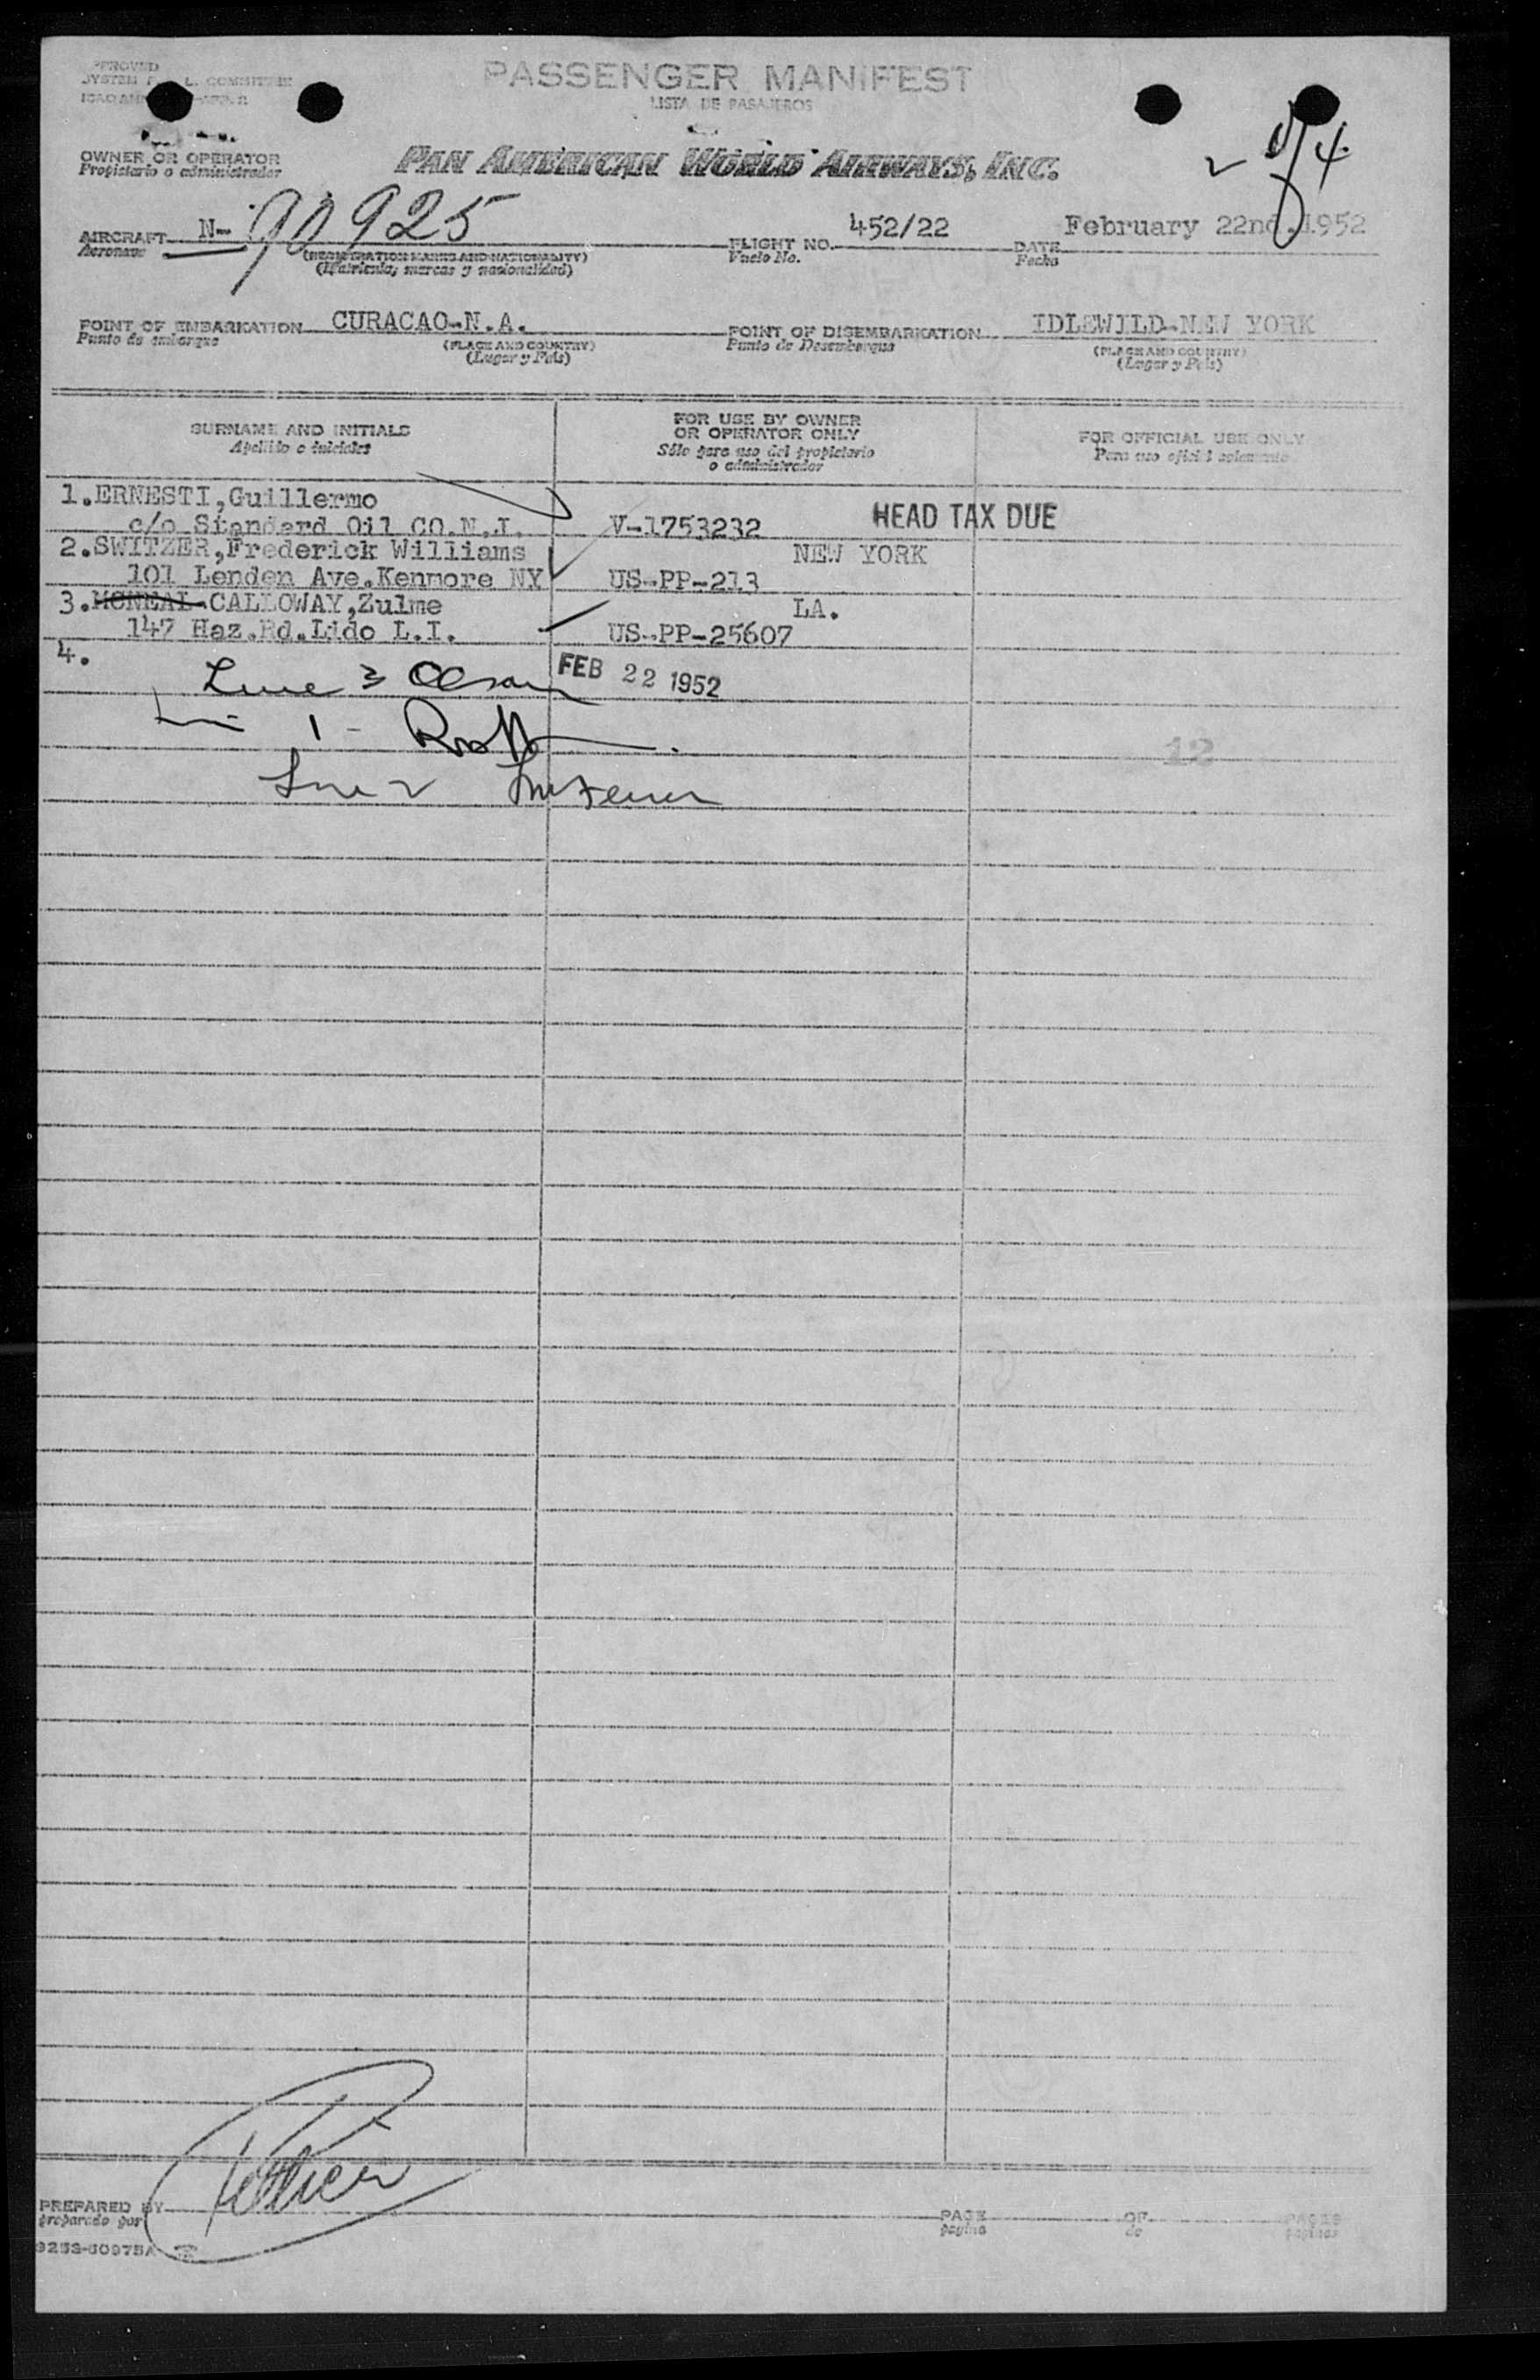 PASSENGER MANIFEST
LISTA DE PASAJEROS
OWNER OR OPERATOR
Propietario o administrador
PAN AMERICAN WORLD AIRWAYS, INC.
AIRCRAFT N-90925 FLIGHT NO. 452/22 DATE February 22nd, 1952
Aeronave (REGISTRATION MARKS AND NATIONALITY) Vuelo No. Fecha
(Matricula, marcas y nacionalidad)
POINT OF EMBARKATION CURACAO-N.A. POINT OF DISEMBARKATION IDLEWILD-NEW YORK
Punto de embarque (PLACE AND COUNTRY) Punto de Desembarque (PLACE AND COUNTRY)
(Lugar y País) (Lugar y País)
SURNAME AND INITIALS
Apellido e iniciales
FOR USE BY OWNER
OR OPERATOR ONLY
Sólo para uso del propietario
o administrador
FOR OFFICIAL USE ONLY
Para uso oficial solamente
1.ERNESTI,Guillermo
c/o Standard Oil CO.N.J. V-1753232 HEAD TAX DUE
2.SWITZER,Frederick Williams NEW YORK
101 Lenden Ave.Kenmore NY US-PP-213
3.MCNEAL-CALLOWAY,Zulme LA.
147 Haz.Rd.Lido L.I. US-PP-25607
4.
FEB 22 1952
Line 3 Olson
1 -
12
Line 2
PREPARED BY PAGE OF PAGES
preparado por página de páginas